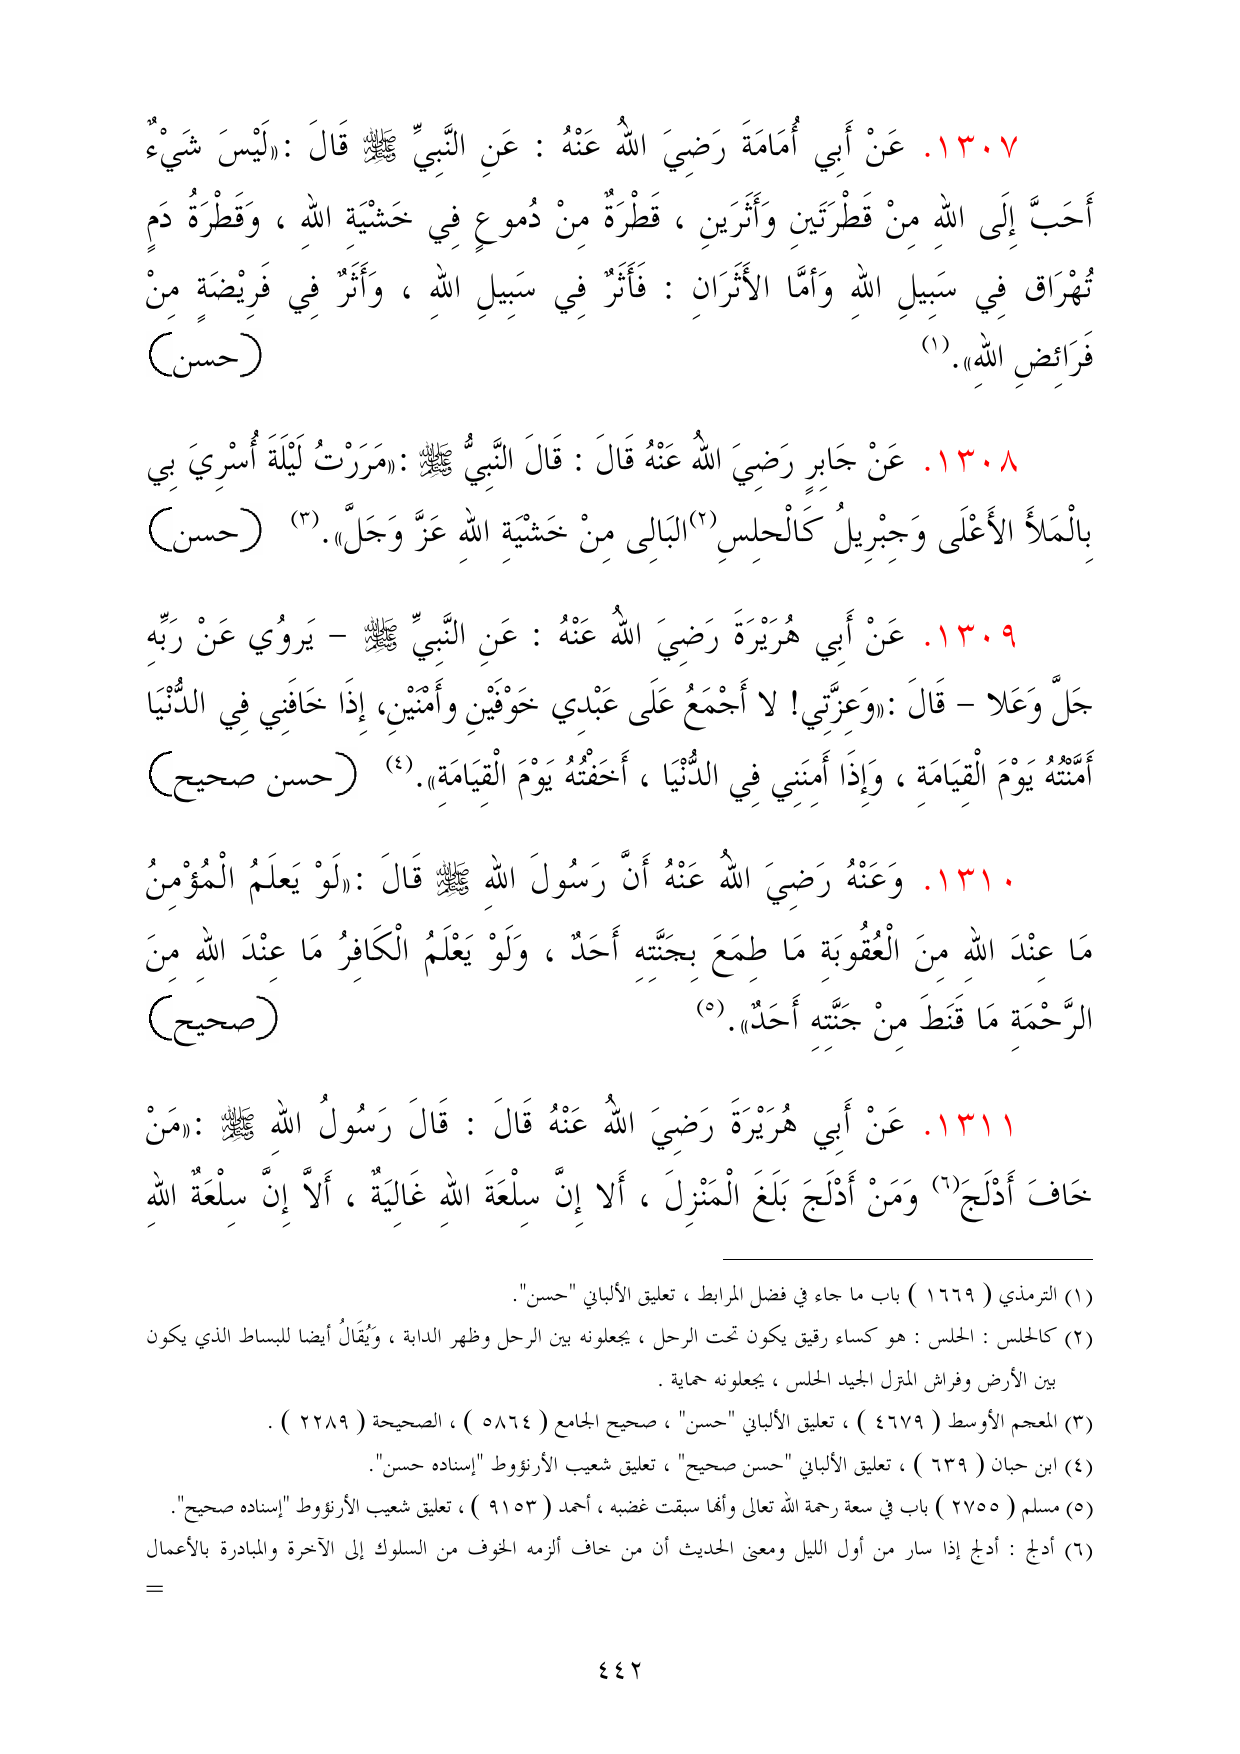 ١٣٠٧. عَنْ أَبِي أُمَامَةَ رَضِيَ اللهُ عَنْهُ : عَنِ النَّبِيِّ ﷺ قَالَ :«لَيْسَ شَيْءٌ
أَحَبَّ إِلَى اللهِ مِنْ قَطْرَتَينِ وَأَثَرَينِ ، قَطْرَةٌ مِنْ دُموعٍ فِي خَشْيَةِ اللهِ ، وَقَطْرَةُ دَمٍ
تُهْرَاق فِي سَبِيلِ اللهِ وَأمَّا الأَثَرَانِ : فَأَثَرٌ فِي سَبِيلِ اللهِ ، وَأَثَرٌ فِي فَرِيْضَةٍ مِنْ
فَرَائِضِ اللهِ».(١) (حسن)
١٣٠٨. عَنْ جَابِرٍ رَضِيَ اللهُ عَنْهُ قَالَ : قَالَ النَّبِيُّ ﷺ :«مَرَرْتُ لَيْلَةَ أُسْرِيَ بِي
بِالْمَلأَ الأَعْلَى وَجِبْرِيلُ كَالْحلِسِ(٢)البَالِى مِنْ خَشْيَةِ اللهِ عَزَّ وَجَلَّ».(٣) (حسن)
١٣٠٩. عَنْ أَبِي هُرَيْرَةَ رَضِيَ اللهُ عَنْهُ : عَنِ النَّبِيِّ ﷺ – يَروُي عَنْ رَبِّهِ
جَلَّ وَعَلا – قَالَ :«وَعِزَّتِي! لا أَجْمَعُ عَلَى عَبْدِي خَوْفَيْنِ وأَمْنَيْنِ، إِذَا خَافَنِي فِي الدُّنْيَا
أَمَّنْتُهُ يَوْمَ الْقِيَامَةِ ، وَإِذَا أَمِنَنِي فِي الدُّنْيَا ، أَخَفْتُهُ يَوْمَ الْقِيَامَةِ».(٤) (حسن صحيح)
١٣١٠. وَعَنْهُ رَضِيَ اللهُ عَنْهُ أَنَّ رَسُولَ اللهِ ﷺ قَالَ :«لَوْ يَعلَمُ الْمُؤْمِنُ
مَا عِنْدَ اللهِ مِنَ الْعُقُوبَةِ مَا طَمِعَ بِجَنَّتِهِ أَحَدٌ ، وَلَوْ يَعْلَمُ الْكَافِرُ مَا عِنْدَ اللهِ مِنَ
الرَّحْمَةِ مَا قَنَطَ مِنْ جَنَّتِهِ أَحَدٌ».(٥) (صحيح)
١٣١١. عَنْ أَبِي هُرَيْرَةَ رَضِيَ اللهُ عَنْهُ قَالَ : قَالَ رَسُولُ اللهِ ﷺ :«مَنْ
خَافَ أَدْلَجَ(٦) وَمَنْ أَدْلَجَ بَلَغَ الْمَنْزِلَ ، أَلا إِنَّ سِلْعَةَ اللهِ غَالِيَةٌ ، أَلاَّ إِنَّ سِلْعَةُ اللهِ
(١) الترمذي ( ١٦٦٩ ) باب ما جاء في فضل المرابط ، تعليق الألباني "حسن".
(٢) كالحلس : الحلس : هو كساء رقيق يكون تحت الرحل ، يجعلونه بين الرحل وظهر الدابة ، وَيُقَالُ أيضا للبساط الذي يكون
بين الأرض وفراش المنزل الجيد الحلس ، يجعلونه حماية .
(٣) المعجم الأوسط ( ٤٦٧٩ ) ، تعليق الألباني "حسن" ، صحيح الجامع ( ٥٨٦٤ ) ، الصحيحة ( ٢٢٨٩ ) .
(٤) ابن حبان ( ٦٣٩ ) ، تعليق الألباني "حسن صحيح" ، تعليق شعيب الأرنؤوط "إسناده حسن".
(٥) مسلم ( ٢٧٥٥ ) باب في سعة رحمة الله تعالى وأنها سبقت غضبه ، أحمد ( ٩١٥٣ ) ، تعليق شعيب الأرنؤوط "إسناده صحيح".
(٦) أدلج : أدلج إذا سار من أول الليل ومعنى الحديث أن من خاف ألزمه الخوف من السلوك إلى الآخرة والمبادرة بالأعمال
=
٤٤٢